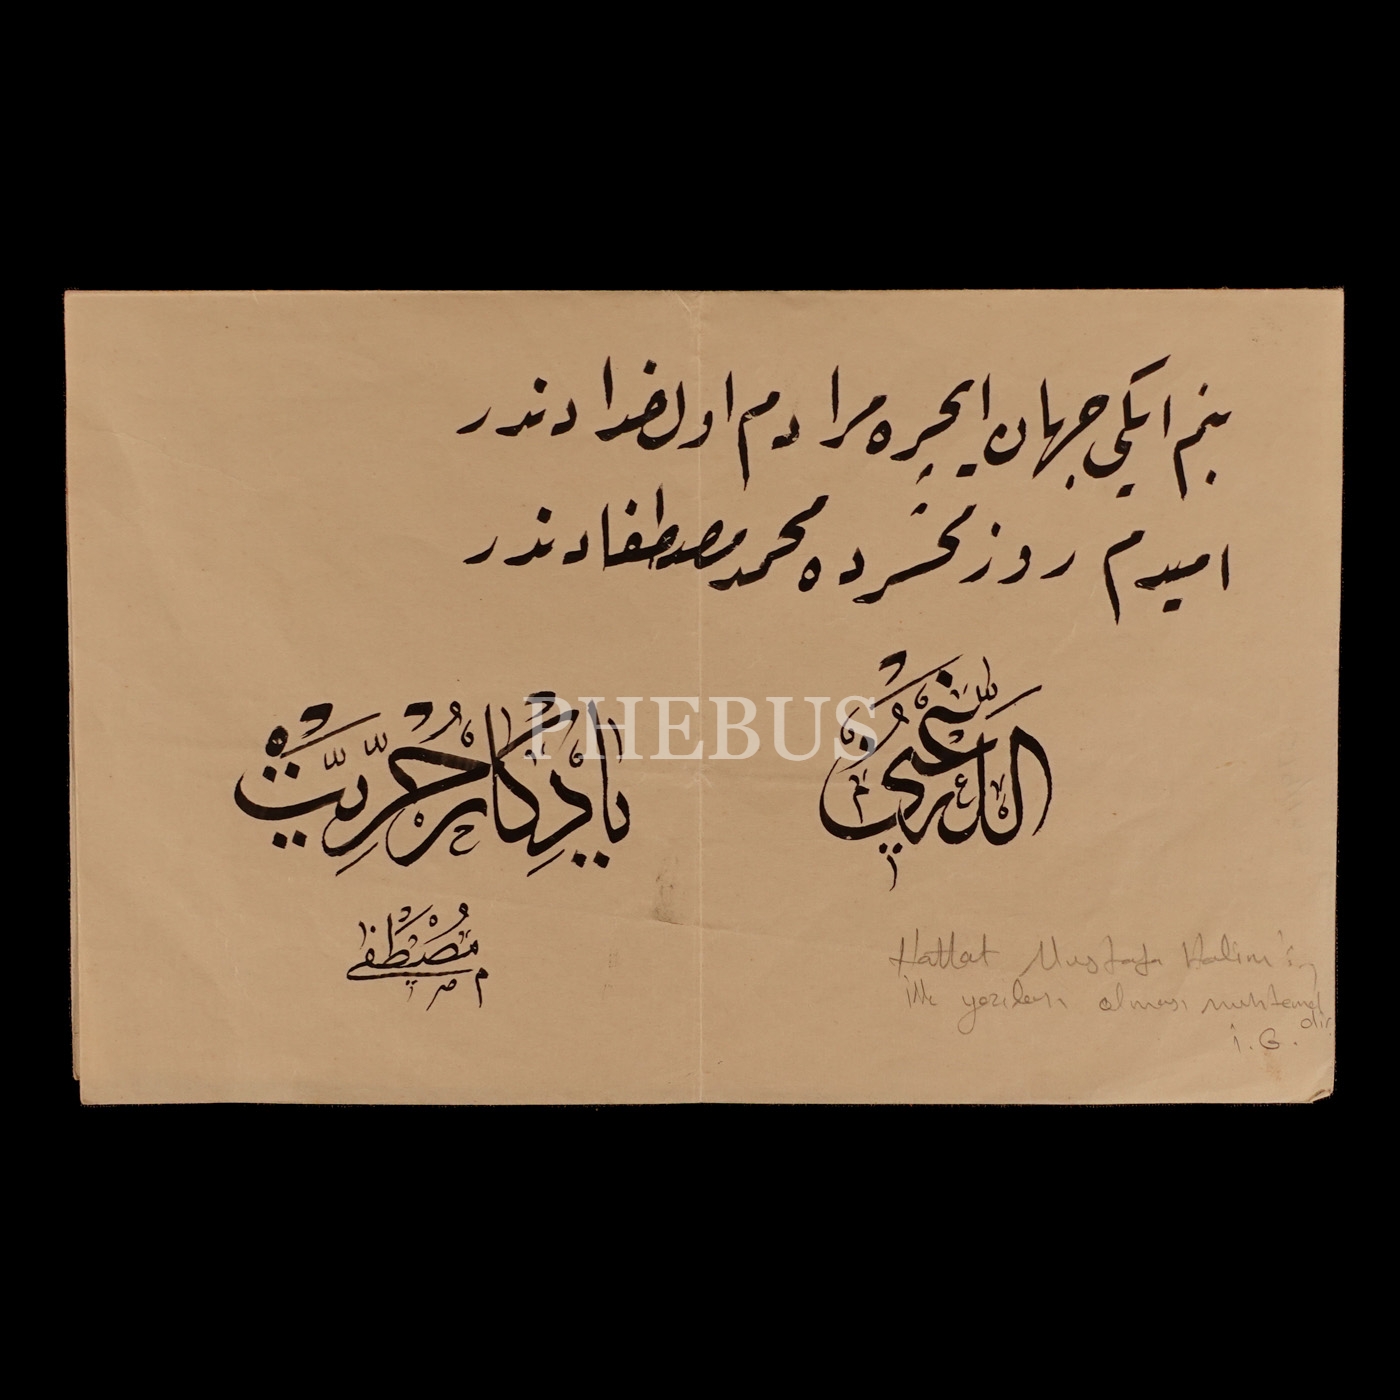 بنم ایکی جهان ایچره مرادم اول خدادندر
امیدم روز محشرده محمد مصطفادندر
یادکار حریت
مصطفى
PHEBUS
Hattat Mustafa Halim'in
ilk yazıları olması muhtemel
dir.
İ. G.